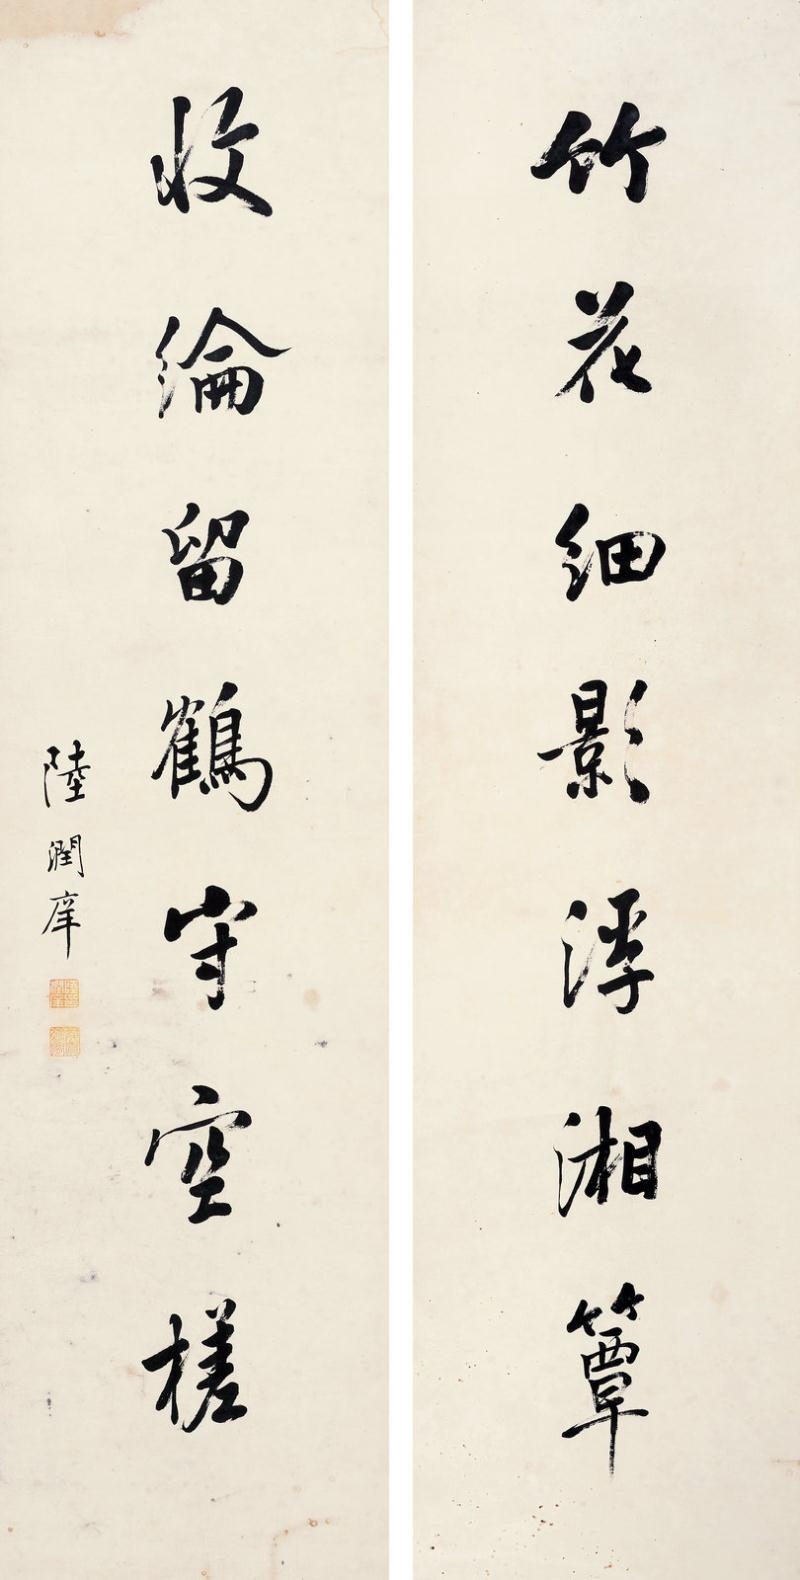 竹花細影浮湘簟
收綸留鶴守空槎
陸潤庠